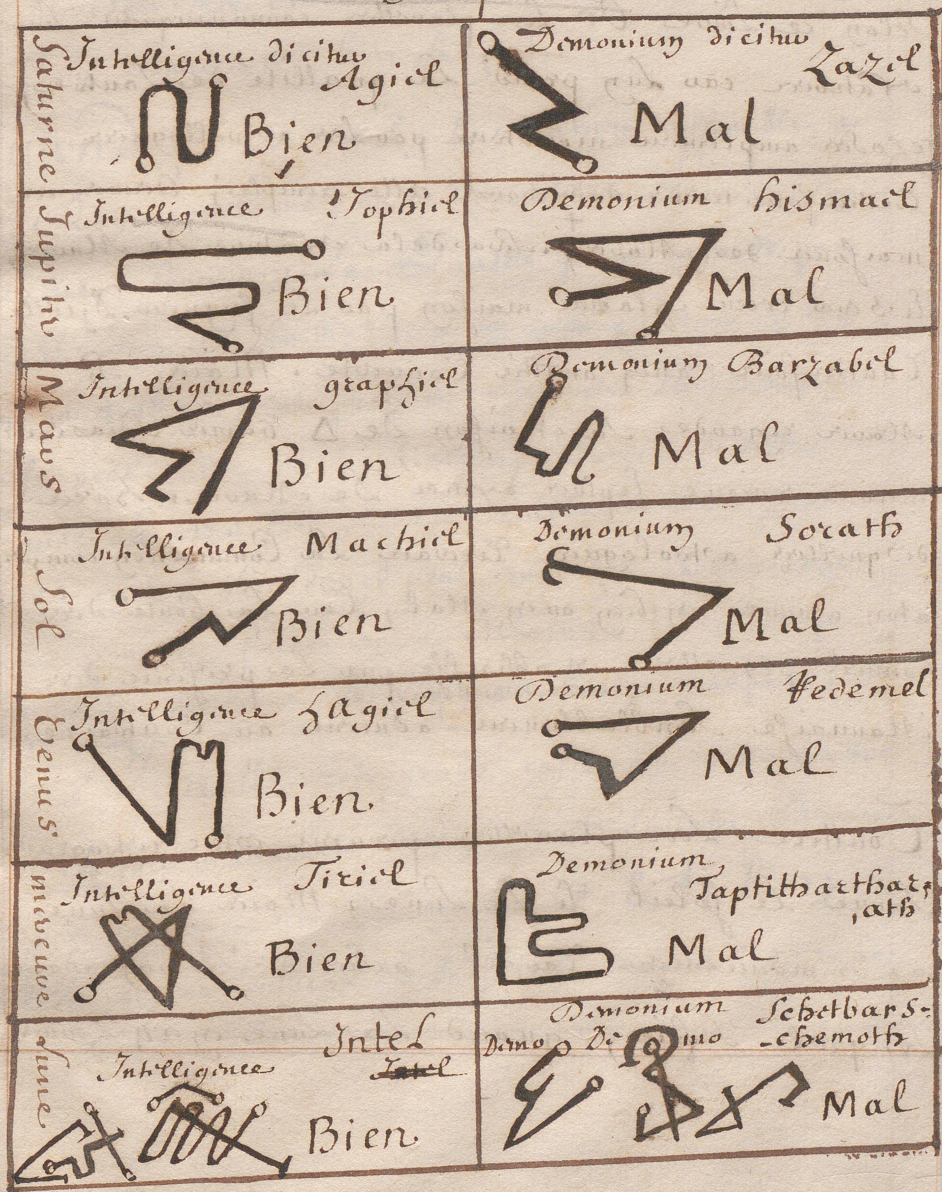 Saturne
Intelligence dicitur
Agiel
Bien
Demonium dicitur
Zazel
Mal
Jupitir
Intelligence Iophiel
Bien
Demonium hismael
Mal
Mars
Intelligence graphiel
Bien
Demonium Barzabel
Mal
Sol
Intelligence Machiel
Bien
Demonium Sorath
Mal
Venus
Intelligence hAgiel
Bien
Demonium Kedemel
Mal
mercure
Intelligence Tiriel
Bien
Demonium
Taptitharthar,
,ath
Mal
Lune
Intel
Intelligence Intel
Bien
Demonium Schetbars=
Demo De mo -chemoth
Mal